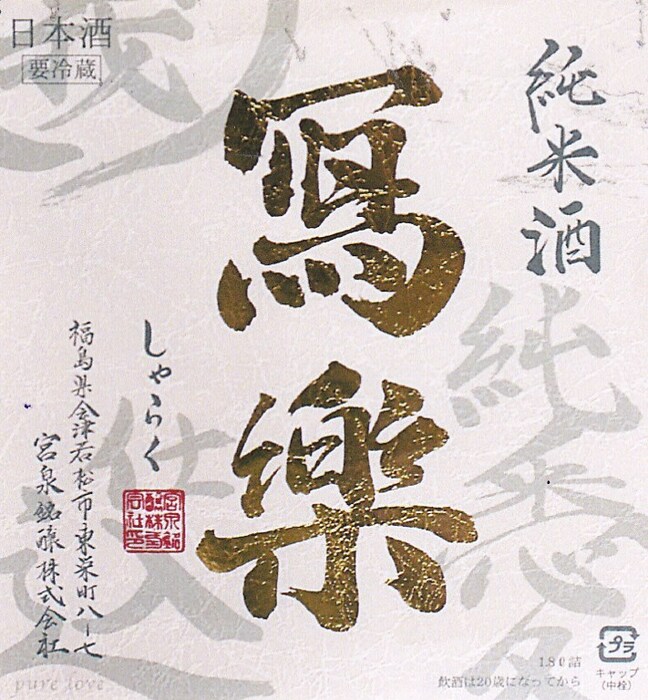 日本酒
要冷蔵
純米酒
寫樂
しゃらく
福島県会津若松市東栄町八ー七
宮泉銘醸株式会社
pure love
1.8ℓ詰
飲酒は20歳になってから
プラ
キャップ
(中栓)